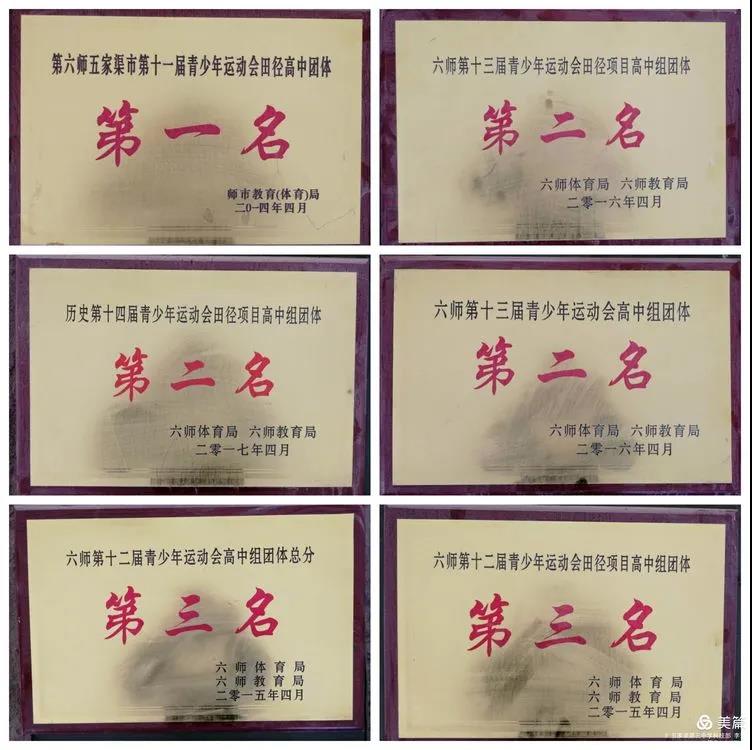 第六师五家渠市第十一届青少年运动会田径高中团体
第一名
师市教育(体育)局
二0一四年四月
六师第十三届青少年运动会田径项目高中组团体
第二名
六师体育局 六师教育局
二零一六年四月
历史第十四届青少年运动会田径项目高中组团体
第二名
六师体育局 六师教育局
二零一七年四月
六师第十三届青少年运动会高中组团体
第二名
六师体育局 六师教育局
二零一六年四月
六师第十二届青少年运动会高中组团体总分
第三名
六师体育局
六师教育局
二零一五年四月
六师第十二届青少年运动会田径项目高中组团体
第三名
六师体育局
六师教育局
二零一五年四月
美篇